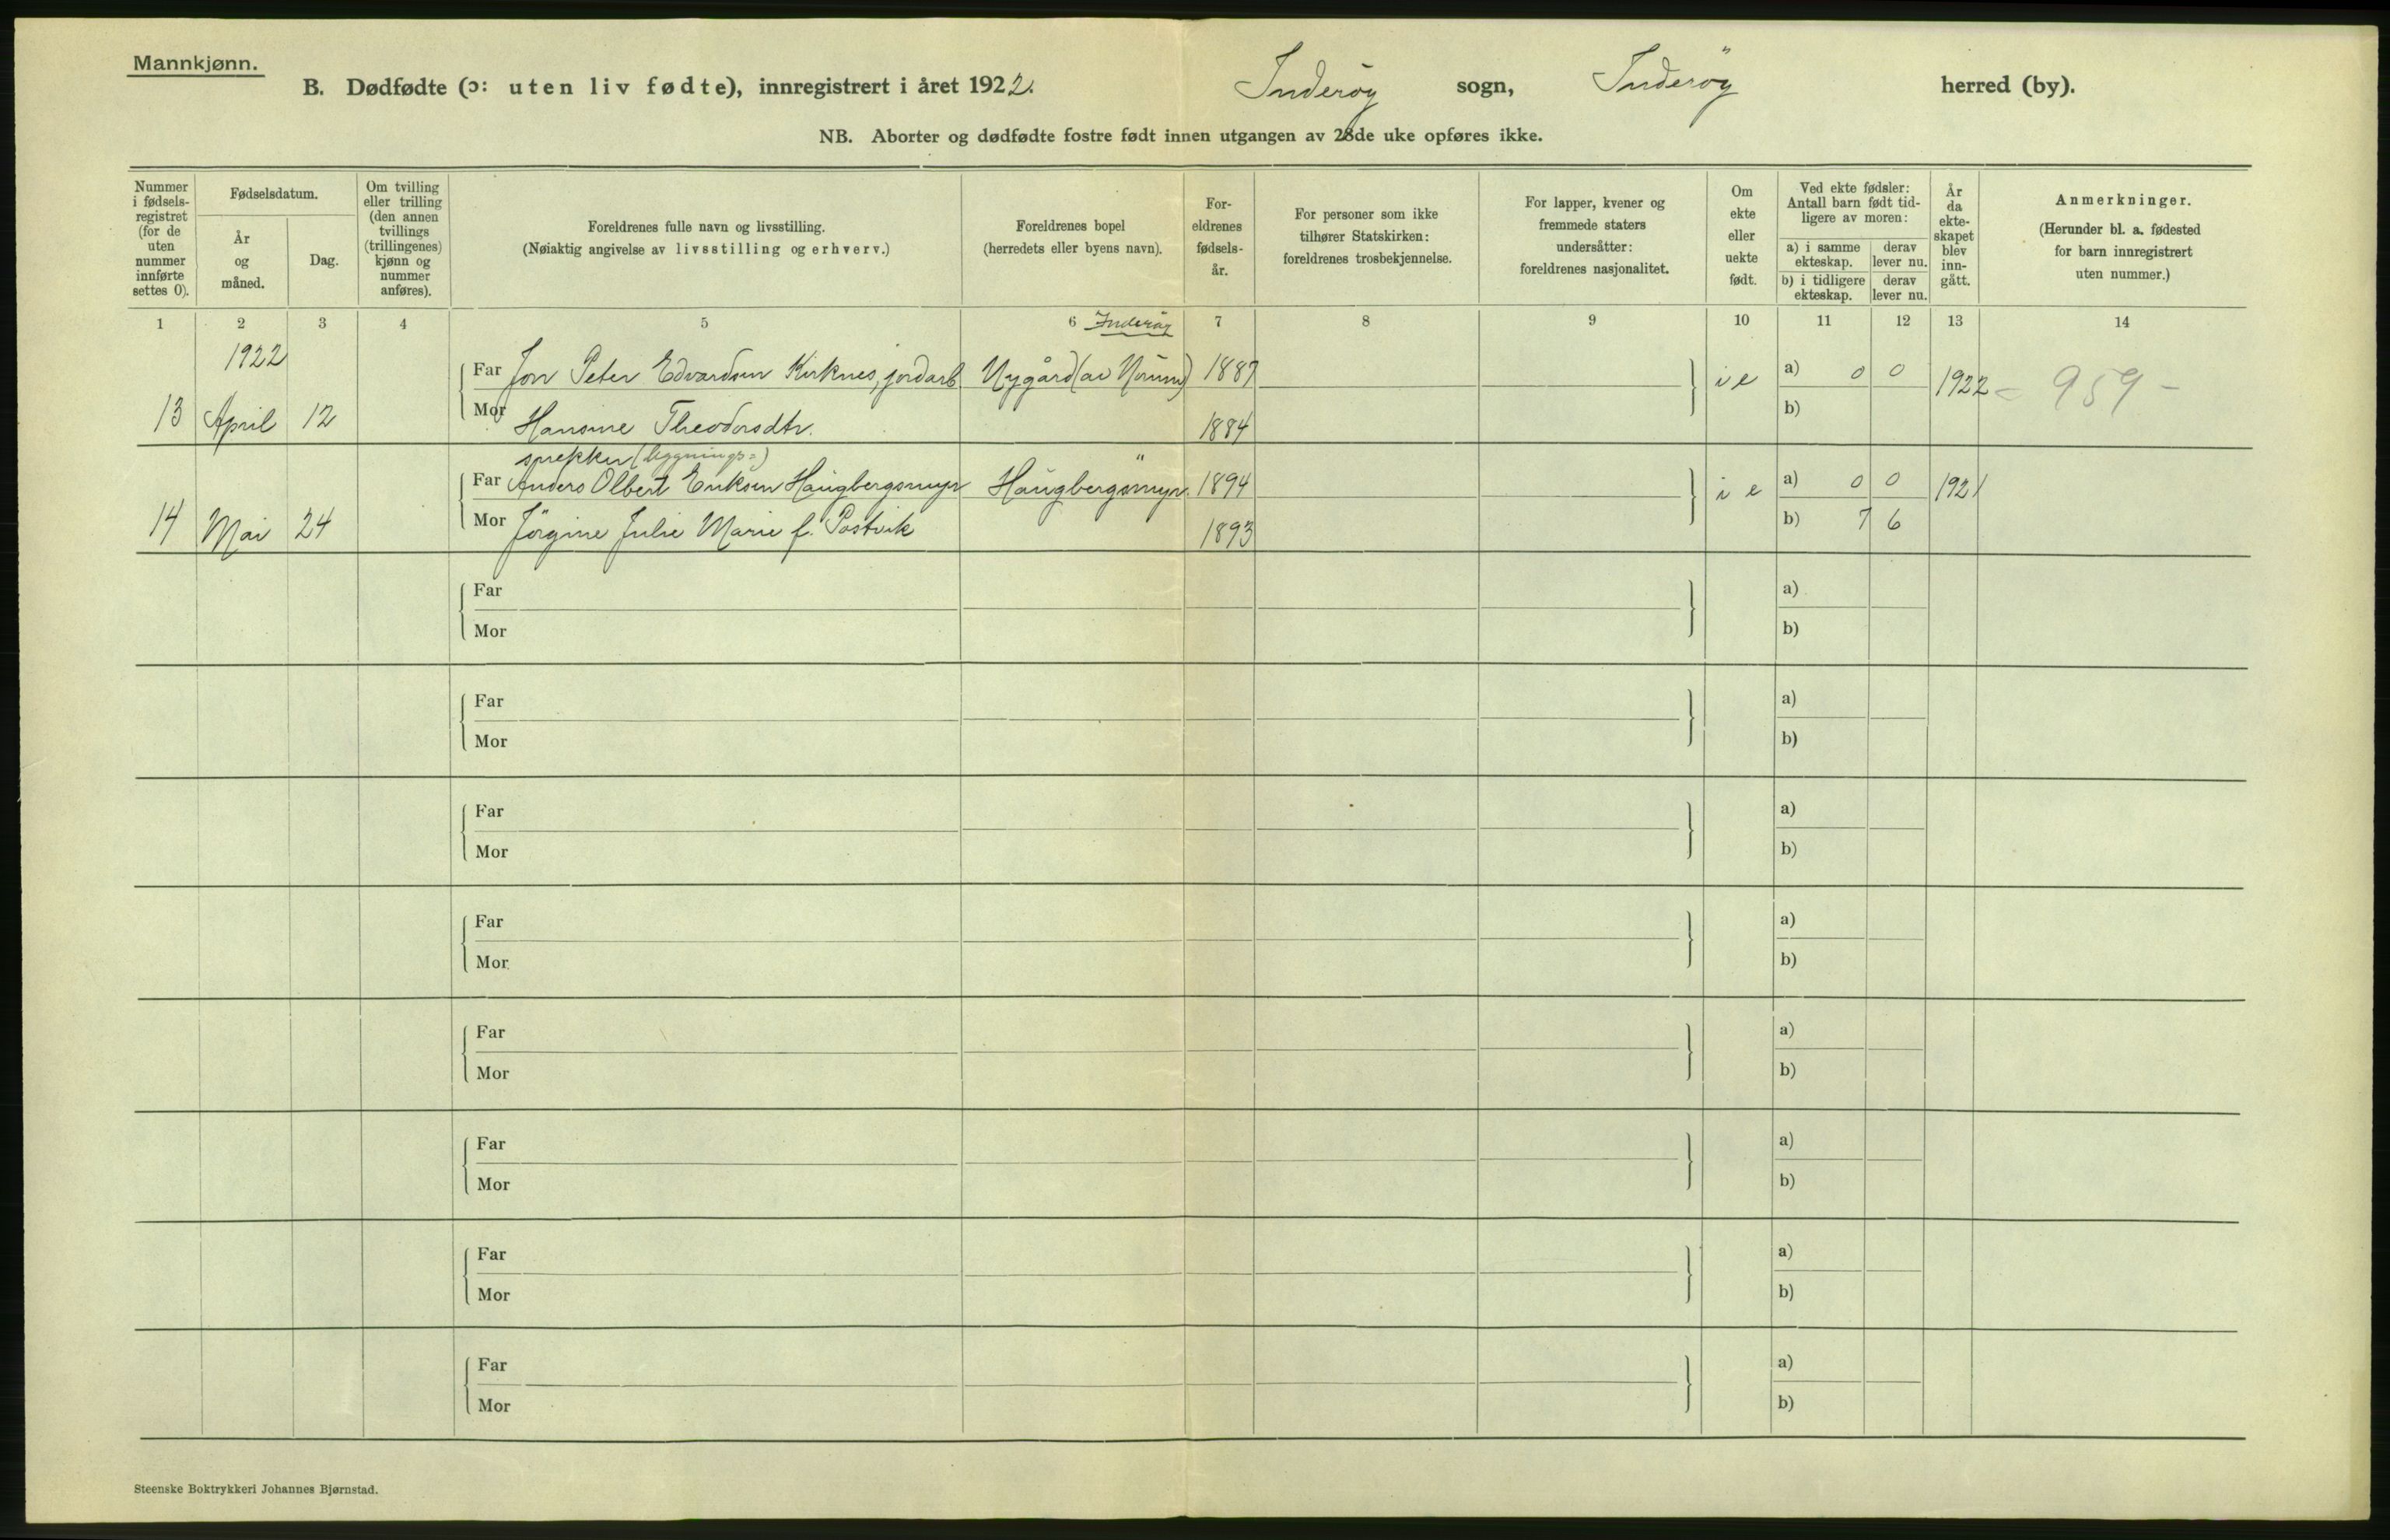 Mannkjønn.
B. Dødfødte (ɔ: uten liv fødte), innregistrert i året 1922. Inderöy sogn, Inderöy herred (by).
NB. Aborter og dødfødte fostre født innen utgangen av 28de uke opføres ikke.
Nummer i fødsels-registret (for de uten nummer innførte settes 0).
Fødselsdatum.
År og måned.
Dag.
Om tvilling eller trilling (den annen tvillings (trillingenes) kjønn og nummer anføres).
Foreldrenes fulle navn og livsstilling.
(Nøiaktig angivelse av livsstilling og erhverv.)
Foreldrenes bopel
(herredets eller byens navn).
For-eldrenes fødsels-år.
For personer som ikke tilhører Statskirken: foreldrenes trosbekjennelse.
For lapper, kvener og fremmede staters undersåtter: foreldrenes nasjonalitet.
Om ekte eller uekte født.
Ved ekte fødsler: Antall barn født tid-ligere av moren:
a) i samme ekteskap.
derav lever nu.
b) i tidligere ekteskap.
derav lever nu.
År da ekte-skapet blev inn-gått.
Anmerkninger.
(Herunder bl. a. fødested for barn innregistrert uten nummer.)
1 2 3 4 5 6 Inderöy 7 8 9 10 11 12 13 14
1922
Far Jon Peter Edvardsen Kirknes, jordarb Nygård (av Norum) 1887 i e a) 0 0 1922 = 959 -
13 April 12 Mor Hansine Theodorsdtr. 1884 b)
sprekker (lægnings=) "
Far Anders Olbert Eriksen Haugbergsmyr Haugbergsmyr. 1894 i e a) 0 0 1921
14 Mai 24 Mor Jörgine Julie Marie f. Postvik 1893 b) 7 6
Far a)
Mor b)
Far a)
Mor b)
Far a)
Mor b)
Far a)
Mor b)
Far a)
Mor b)
Far a)
Mor b)
Far a)
Mor b)
Far a)
Mor b)
Steenske Boktrykkeri Johannes Bjørnstad.